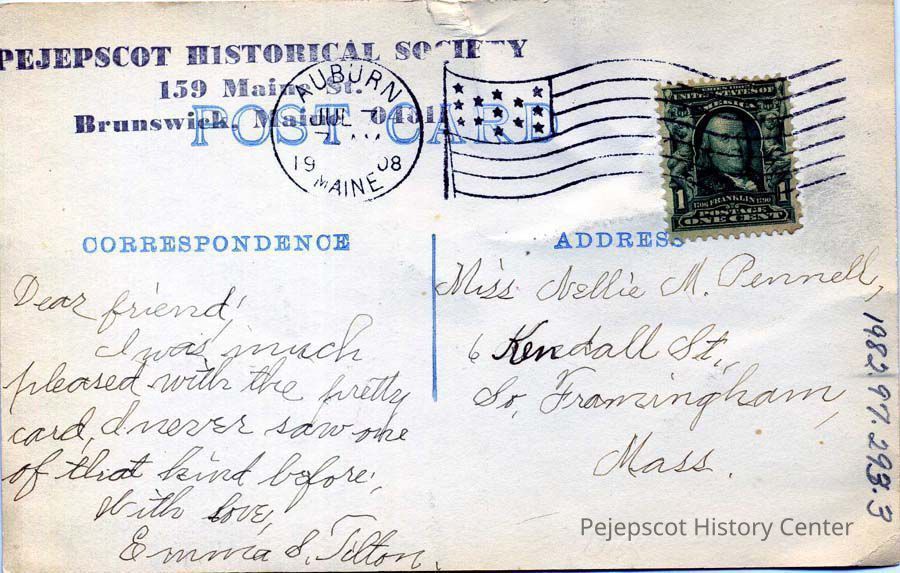 PEJEPSCOT HISTORICAL SOCIETY
159 Maine St.
Brunswick, Maine 04011
POST CARD
AUBURN
JUL
7
1908
MAINE
UNITED STATES OF
AMERICA
1 1
1706 FRANKLIN 1790
POSTAGE
ONE CENT
CORRESPONDENCE
ADDRESS
Dear friend,
I was much
pleased with the pretty
card, I never saw one
of that kind before,
With love,
Emma S. Tilton.
Miss Nellie M. Pennell,
6 Kendall St.,
So. Framingham,
Mass.
1982.97.293.3
Pejepscot History Center